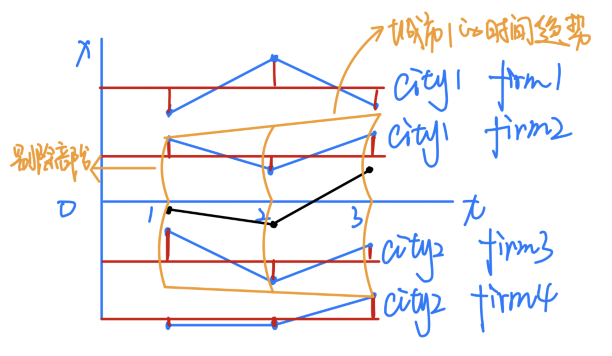 城市1的时间趋势
x
city1 firm1
city1 firm2
剔除高阶
0
1 2 3 t
city2 firm3
city2 firm4